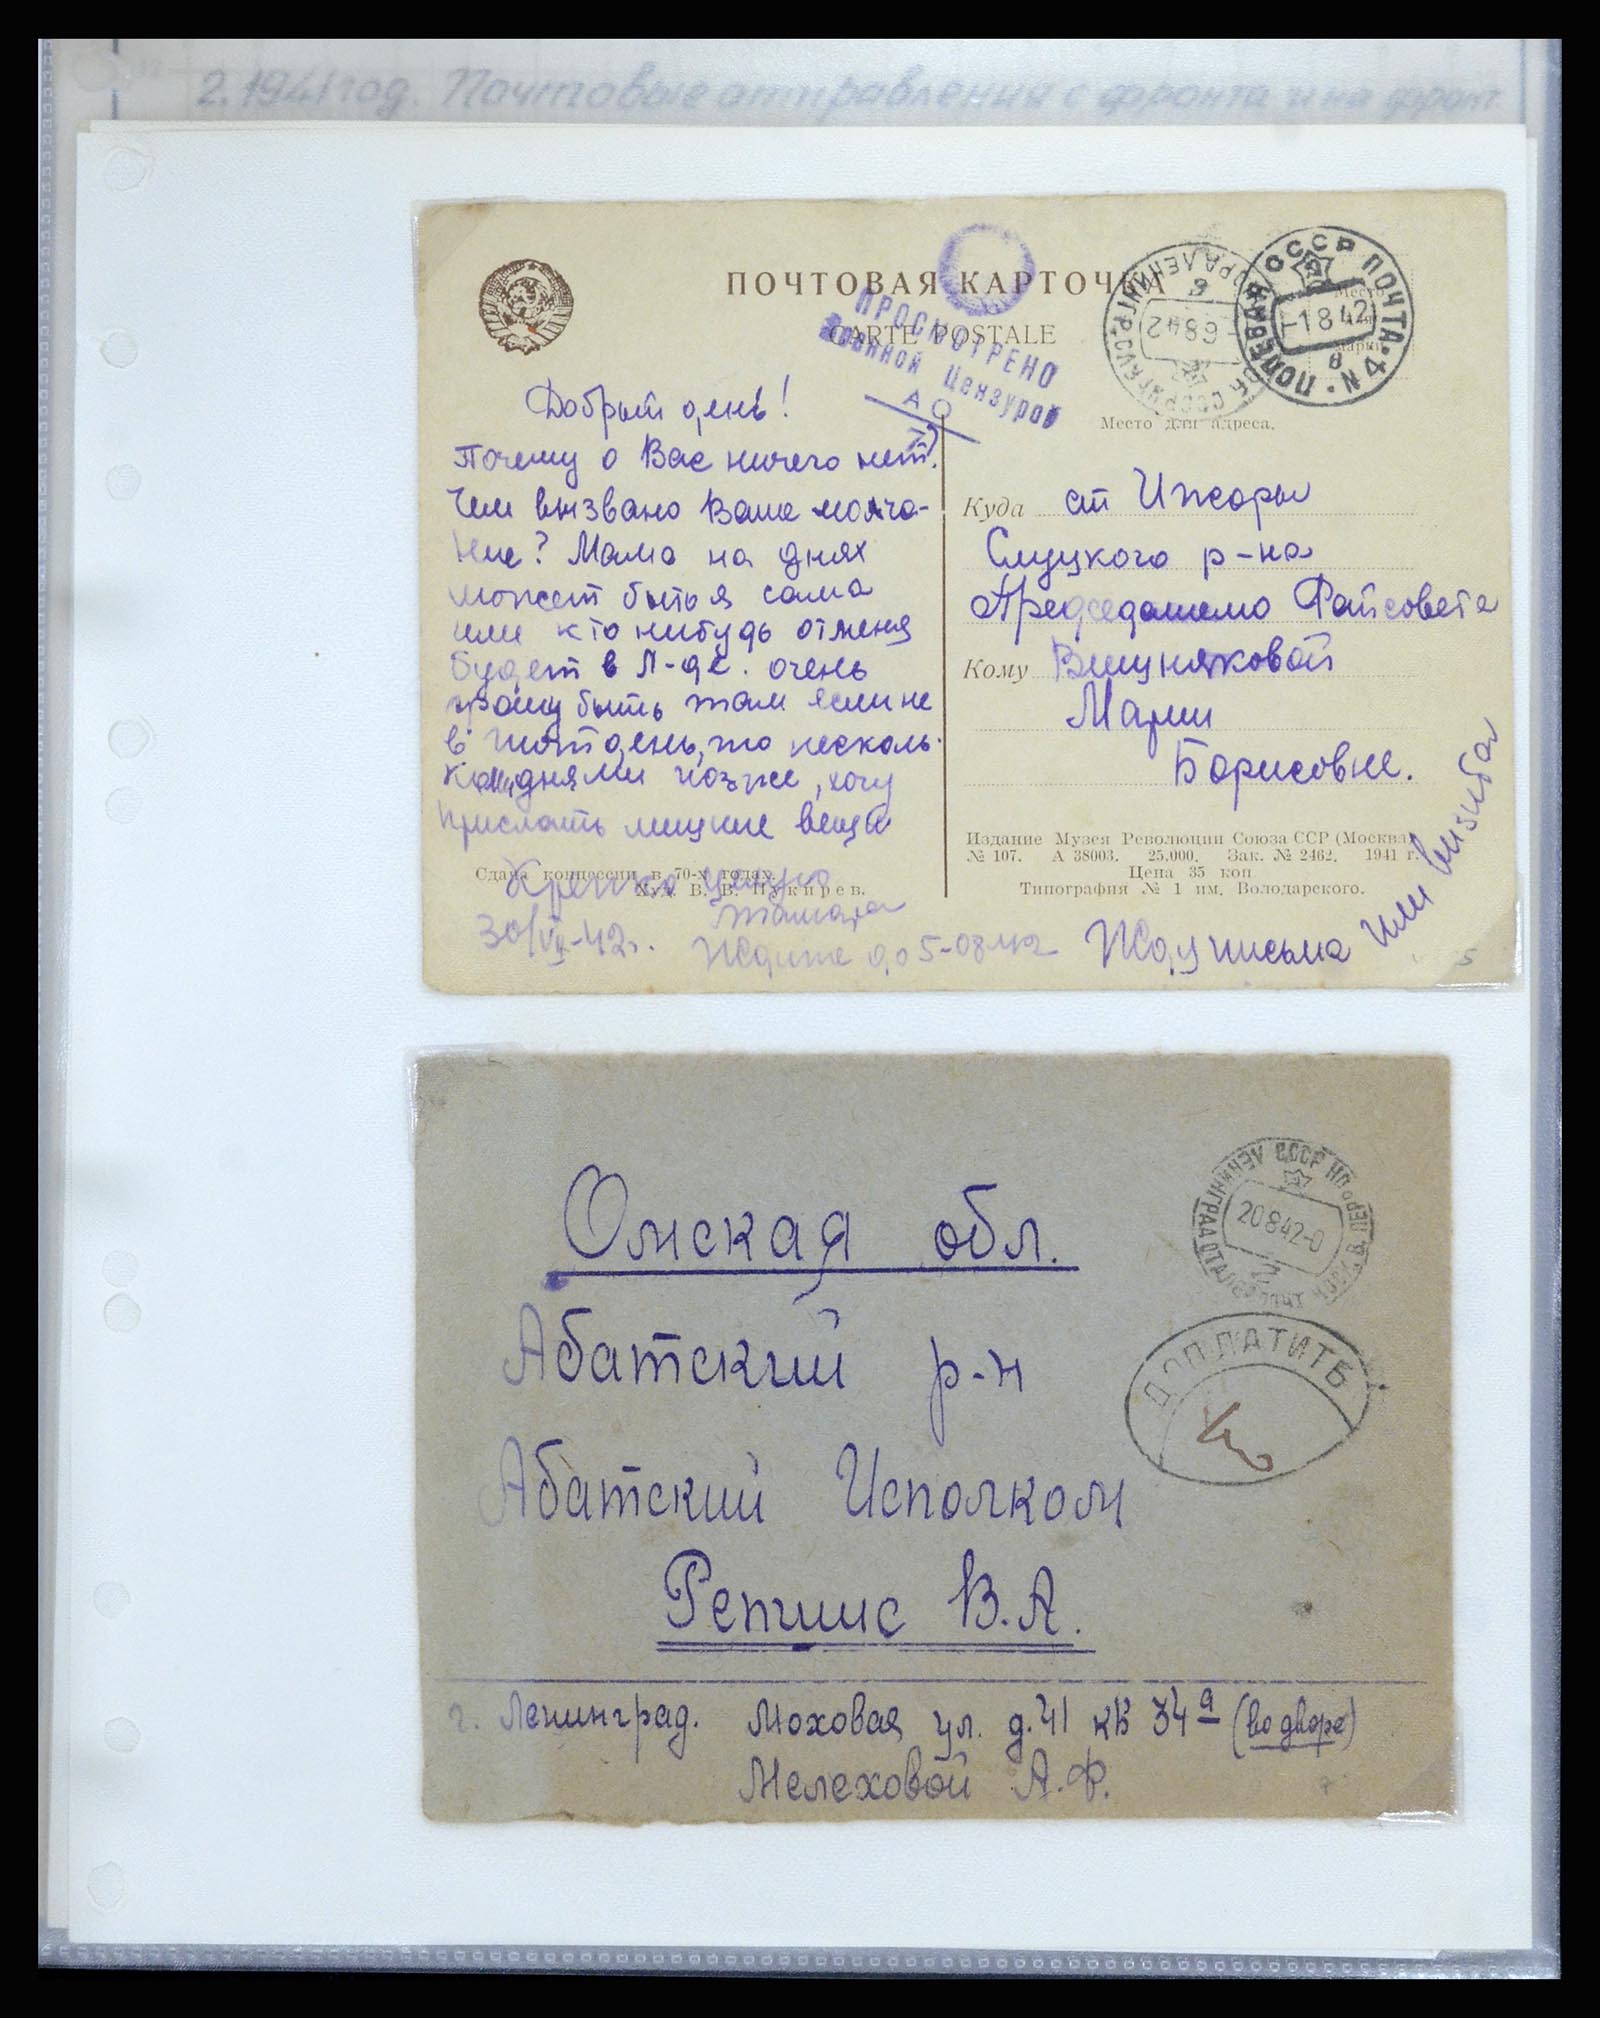 2. 1941 год. Почтовые отправления с фронта и на фронт.
ПОЧТОВАЯ КАРТОЧКА
CARTE POSTALE
ПРОСМОТРЕНО
Военной Цензурой
СССР ПОЧТА • N 4
ПОЛЕВАЯ
-1 8 42
6 8 42
Место
для
марки
Место для адреса.
Добрый день!
Почему о Вас ничего нет.
Чем вызвано Ваше молча-
ние? Мама на днях
может быть я сама
или кто нибудь отменя
будет в Л-де. очень
прошу быть там если не
в этот день, то несколь-
кими днями позже, хочу
прислать вещи
Крепко целую
Тамара
30/VII-42г.
Ждите до 5-08
Жду письма
или визита
Куда ст Ижоры
Слуцкого р-на
Председателю совета
Кому Вишняковой
Марии
Борисовне.
Сдача концессии в 70-х годах.
Худ. В. В. Пукирев.
Издание Музея Революции Союза ССР (Москва)
№ 107. А 38003. 25.000. Зак. № 2462. 1941 г.
Цена 35 коп
Типография № 1 им. Володарского.
СССР
ЛЕНИНГРАД
20 8 42-0
ДОПЛАТИТЬ
Омская обл.
Абатский р-н
Абатский Исполком
Репшис В.А.
г. Ленинград. Моховая ул. д. 41 кв 34а (во дворе)
Мелеховой А.Ф.